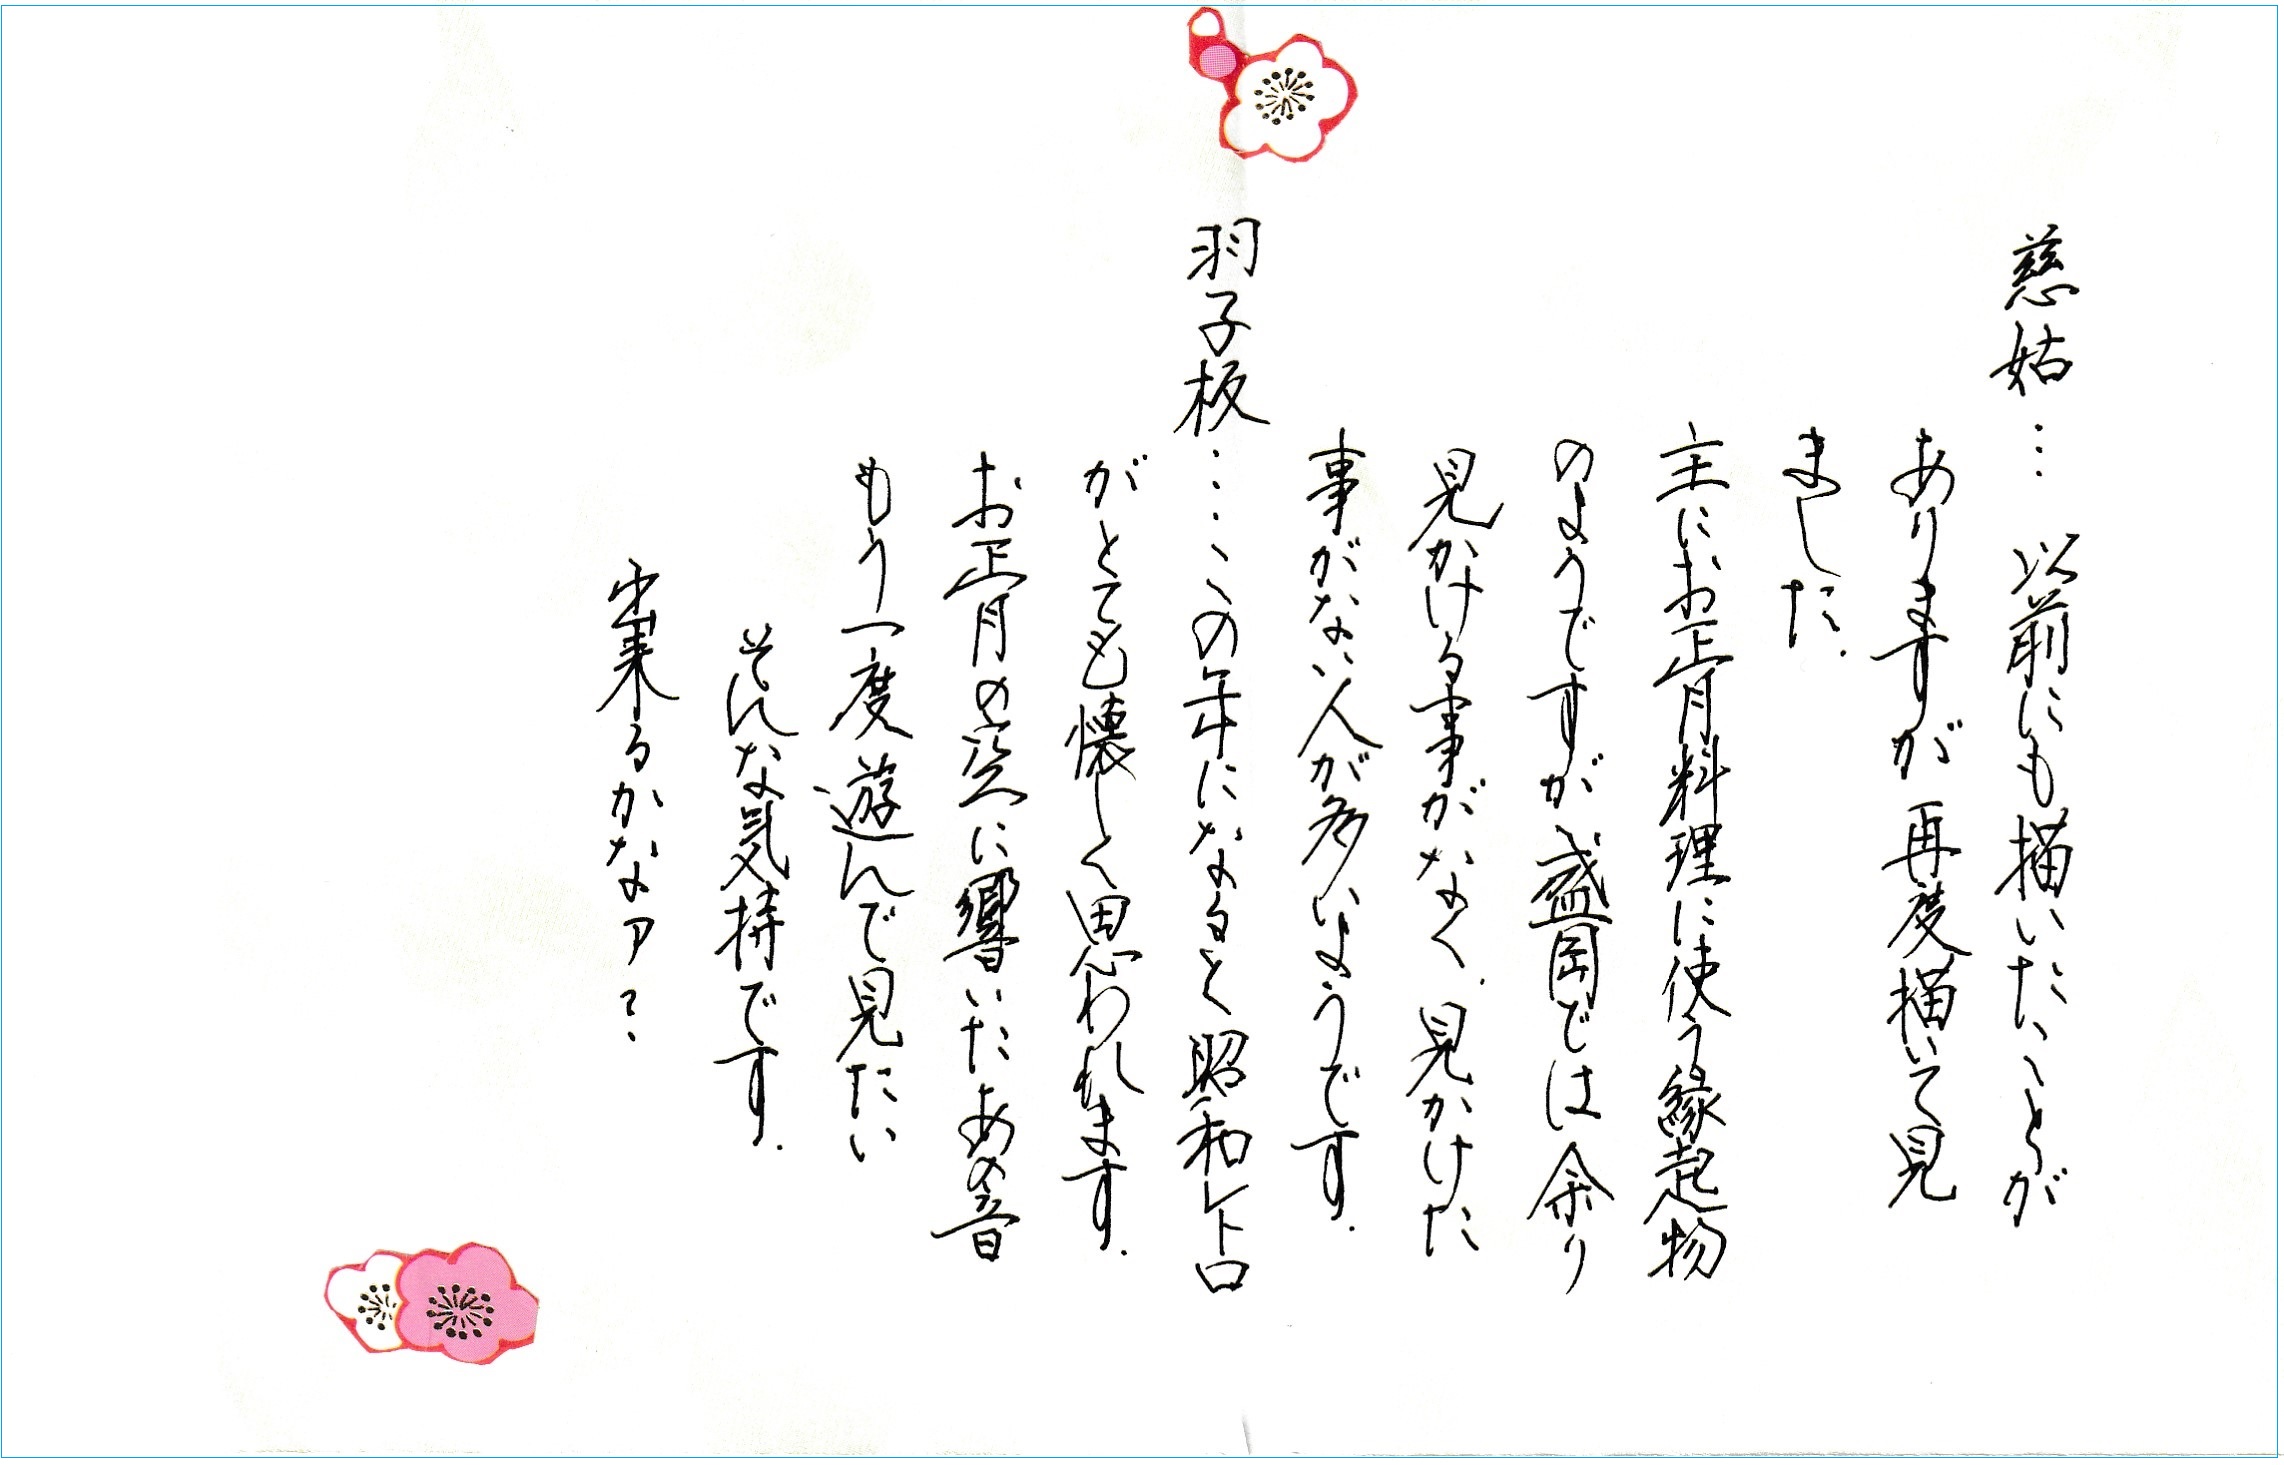 慈姑… 以前にも描いたことが
ありますが再度描いて見
ました.
主にお正月料理に使う縁起物
のようですが盛岡では余り
見かける事がなく.見かけた
事がない人が多いようです.
羽子板…この年になると昭和レトロ
がとても懐しく思われます.
お正月の空に響いたあの音
もう一度遊んで見たい
そんな気持です.
出来るかなァ?